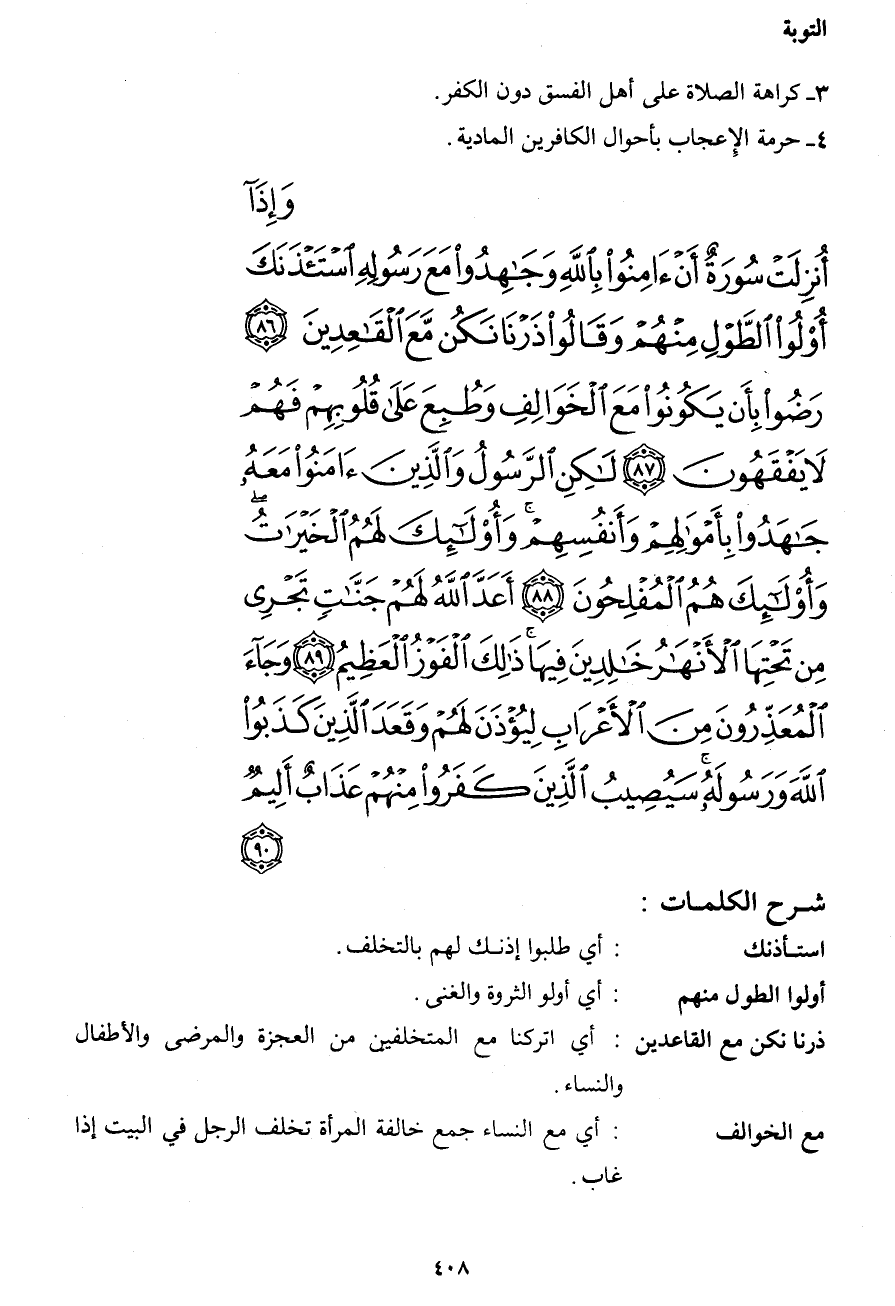 التوبة
٣ـ كراهة الصلاة على أهل الفسق دون الكفر.
٤ـ حرمة الإعجاب بأحوال الكافرين المادية.
وَإِذَآ
أُنزِلَتْ سُورَةٌ أَنْ ءَامِنُوا۟ بِٱللَّهِ وَجَـٰهِدُوا۟ مَعَ رَسُولِهِ ٱسْتَـْٔذَنَكَ
أُو۟لُوا۟ ٱلطَّوْلِ مِنْهُمْ وَقَالُوا۟ ذَرْنَا نَكُن مَّعَ ٱلْقَـٰعِدِينَ ﴿٨٦﴾
رَضُوا۟ بِأَن يَكُونُوا۟ مَعَ ٱلْخَوَالِفِ وَطُبِعَ عَلَىٰ قُلُوبِهِمْ فَهُمْ
لَا يَفْقَهُونَ ﴿٨٧﴾ لَـٰكِنِ ٱلرَّسُولُ وَٱلَّذِينَ ءَامَنُوا۟ مَعَهُۥ
جَـٰهَدُوا۟ بِأَمْوَٰلِهِمْ وَأَنفُسِهِمْ ۚ وَأُو۟لَـٰٓئِكَ لَهُمُ ٱلْخَيْرَٰتُ ۖ
وَأُو۟لَـٰٓئِكَ هُمُ ٱلْمُفْلِحُونَ ﴿٨٨﴾ أَعَدَّ ٱللَّهُ لَهُمْ جَنَّـٰتٍ تَجْرِى
مِن تَحْتِهَا ٱلْأَنْهَـٰرُ خَـٰلِدِينَ فِيهَا ۚ ذَٰلِكَ ٱلْفَوْزُ ٱلْعَظِيمُ ﴿٨٩﴾ وَجَآءَ
ٱلْمُعَذِّرُونَ مِنَ ٱلْأَعْرَابِ لِيُؤْذَنَ لَهُمْ وَقَعَدَ ٱلَّذِينَ كَذَبُوا۟
ٱللَّهَ وَرَسُولَهُۥ ۚ سَيُصِيبُ ٱلَّذِينَ كَفَرُوا۟ مِنْهُمْ عَذَابٌ أَلِيمٌ
﴿٩٠﴾
شـرح الكلمـات :
استـأذنك : أي طلبوا إذنـك لهم بالتخلف.
أولوا الطول منهم : أي أولو الثروة والغنى.
ذرنا نكن مع القاعدين : أي اتركنا مع المتخلفين من العجزة والمرضى والأطفال
والنساء.
مع الخوالف : أي مع النساء جمع خالفة المرأة تخلف الرجل في البيت إذا
غاب.
٤٠٨